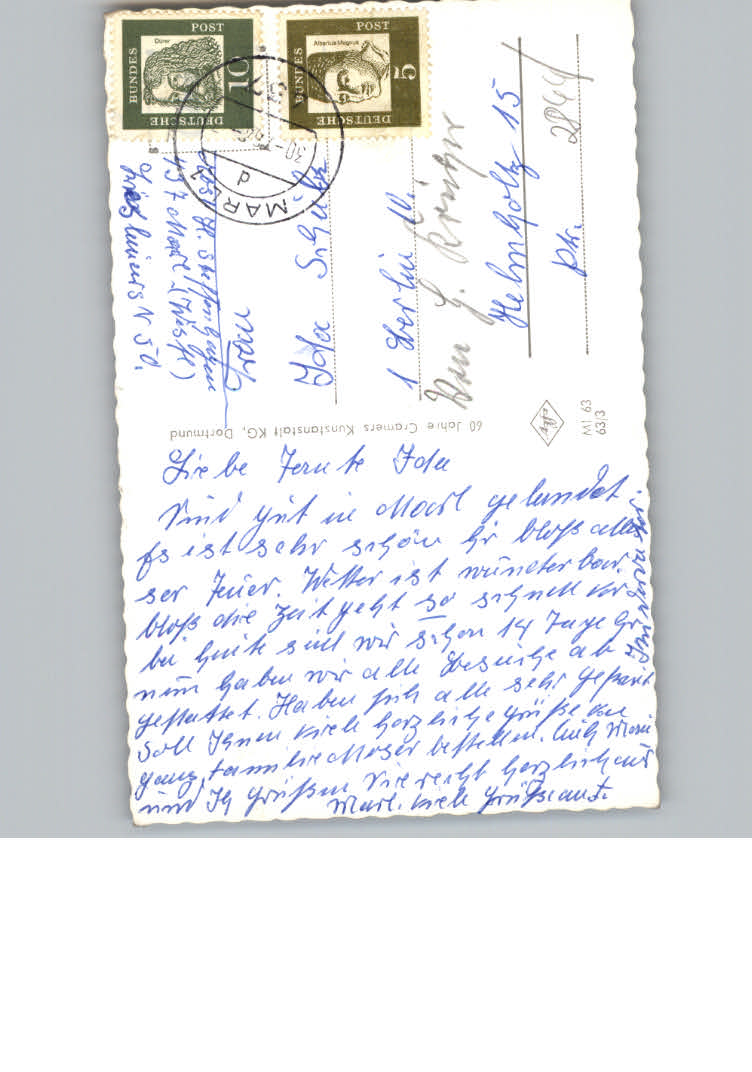 Liebe Tante Ida
Sind gut in Marl gelandet.
Es ist sehr schön hir bloß alles
ser Teuer. Wetter ist wunderbar.
bloß die Zeit geht so schnell vor
bei heute sind wir schon 14 Tage hir
nun haben wir alle Besuche ab
gestattet. Haben sich alle sehr gefreut
Soll Ihnen viele herzliche Grüße von
ganz Familie Moser bestellen. Auch
und Ich Grüßen Sie recht herzlich aus
Marl. viele Grüße an
60 Jahre Cramers Kunstanstalt KG, Dortmund
MI 63
63/3
Abs. H.
437 Marl (Westf)
N 50.
Frau
Ida Schulz
1 Berlin 10.
Von H. Krüger
Helmholtz 15
Ptr.
2844
DEUTSCHE BUNDESPOST
Dürer
10
DEUTSCHE BUNDESPOST
Albertus Magnus
5
MARL
d
30.